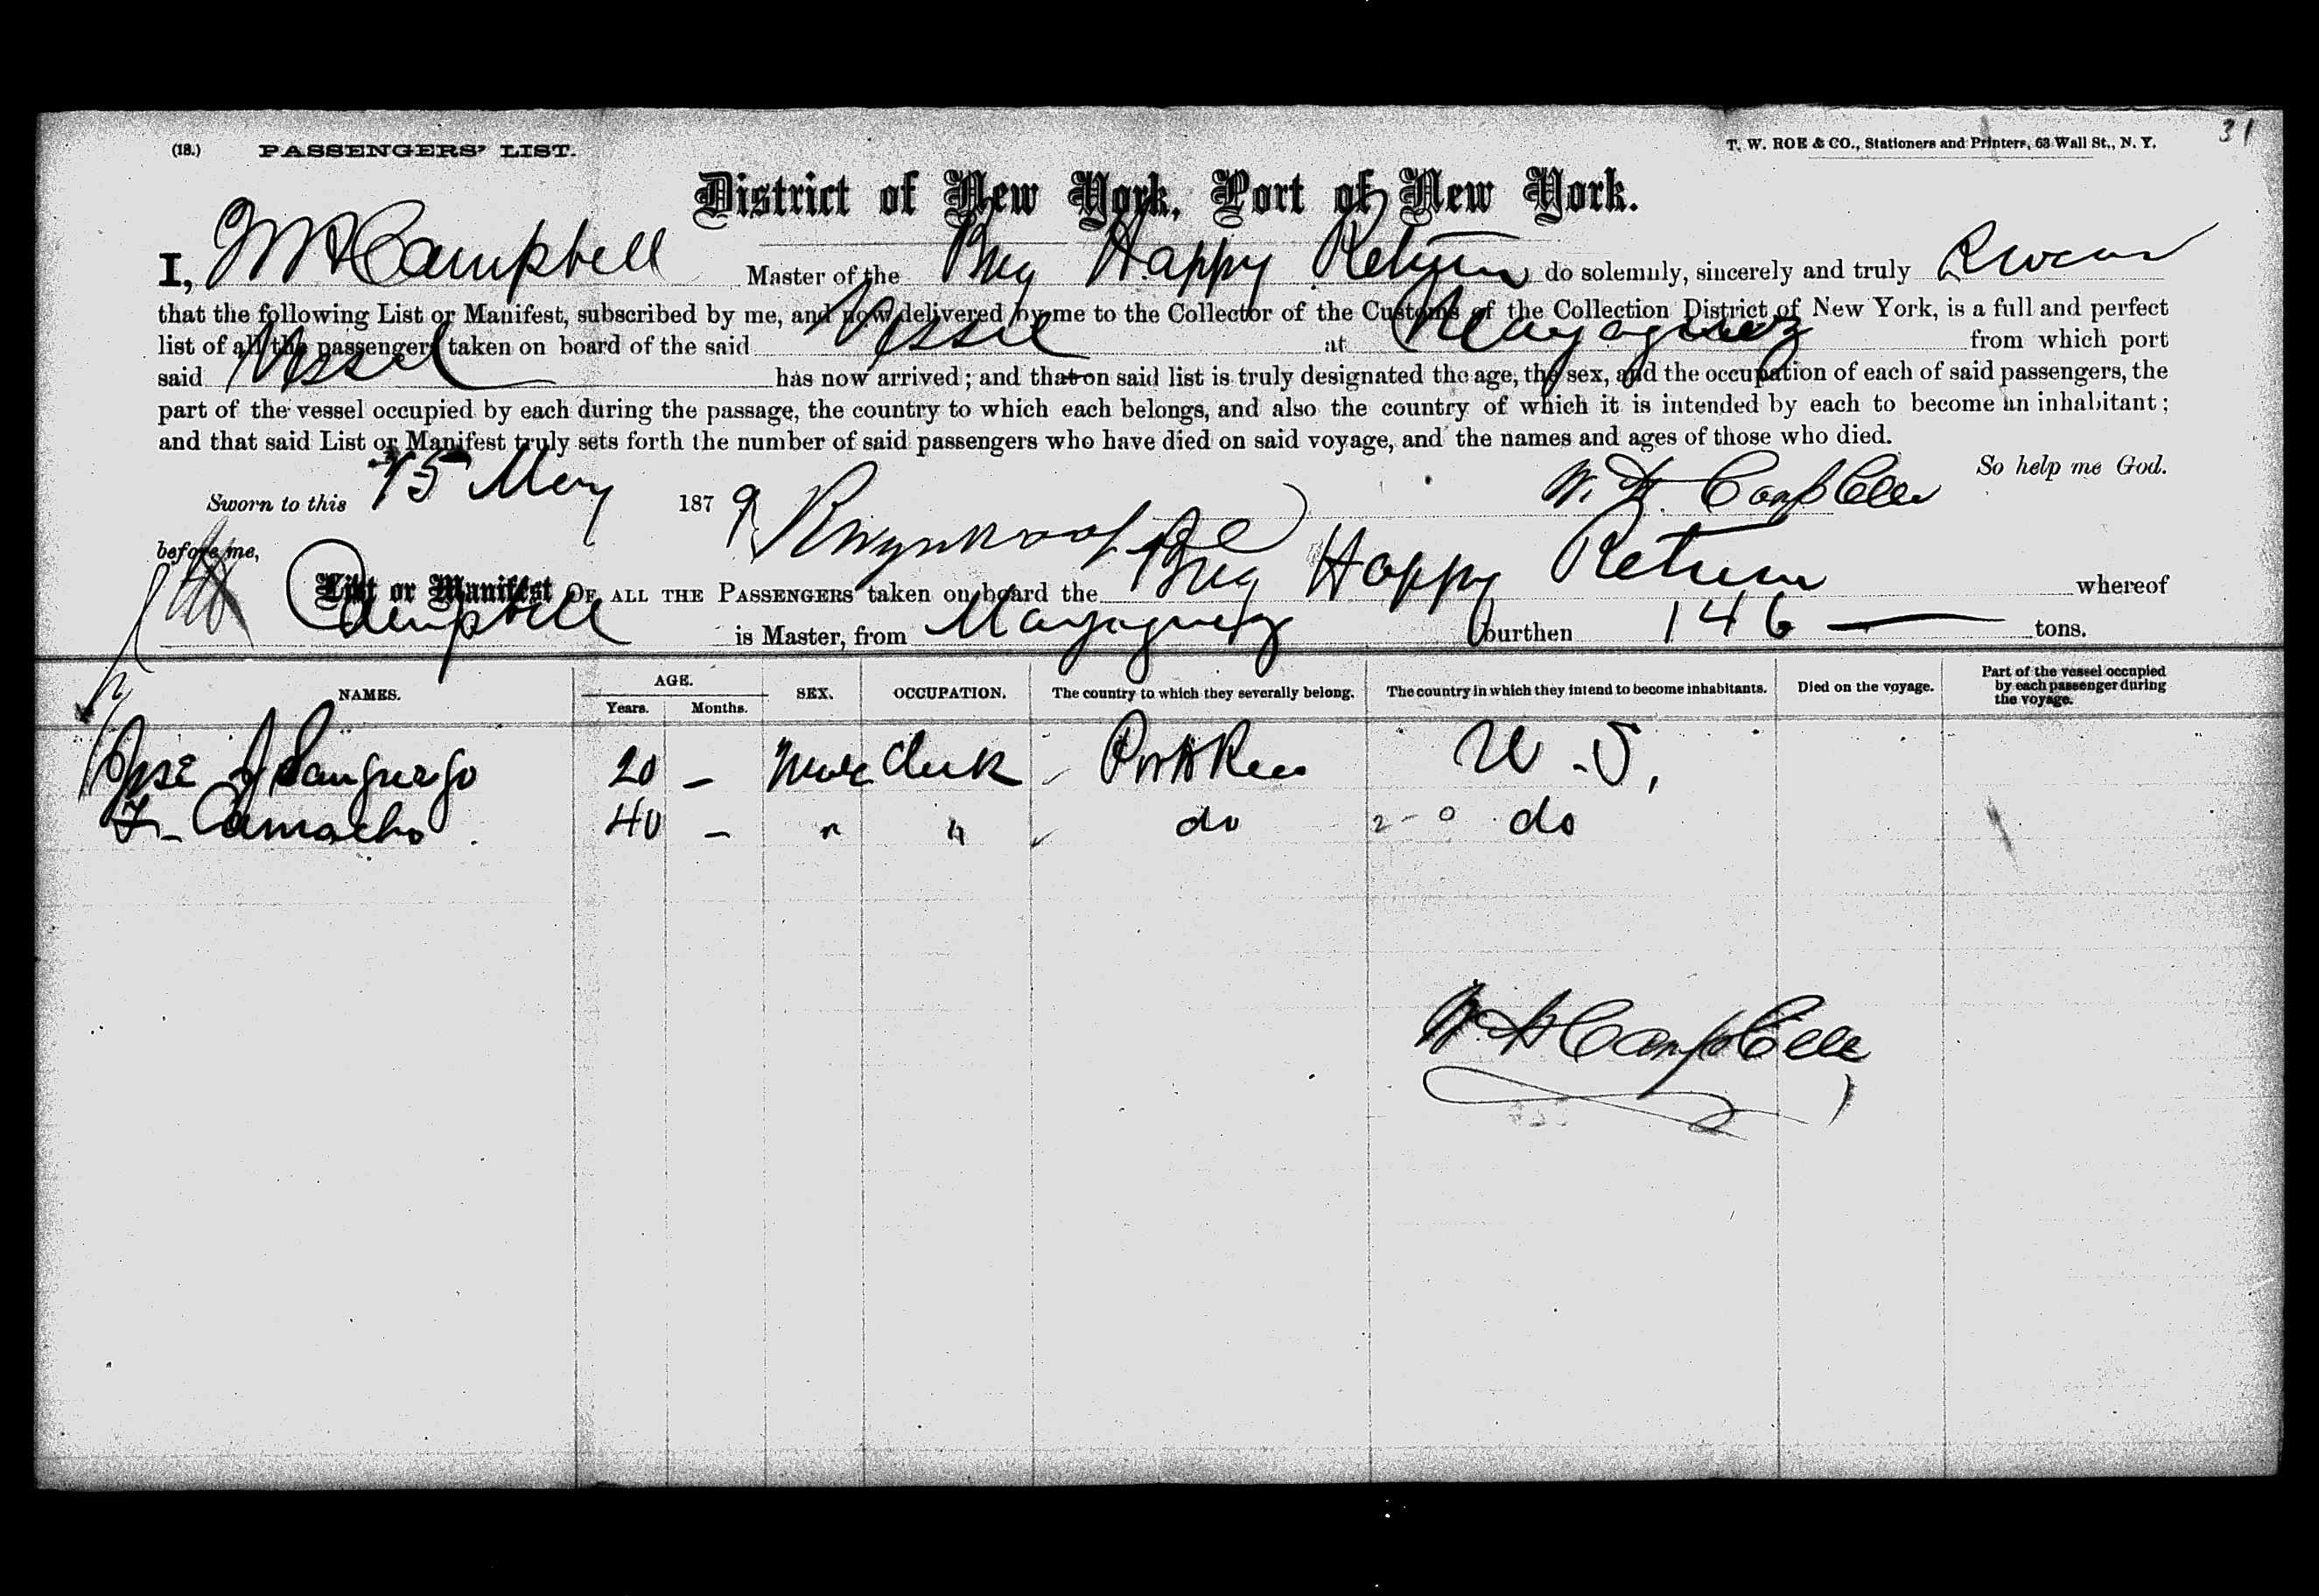 (18.) PASSENGERS' LIST. T. W. ROE & CO., Stationers and Printers, 63 Wall St., N. Y. 31
District of New York, Port of New York.
I, W H Campbell Master of the Brig Happy Return do solemnly, sincerely and truly Swear
that the following List or Manifest, subscribed by me, and now delivered by me to the Collector of the Customs of the Collection District of New York, is a full and perfect
list of all the passengers taken on board of the said Vessel at Mayaguez from which port
said Vessel has now arrived; and that on said list is truly designated the age, the sex, and the occupation of each of said passengers, the
part of the vessel occupied by each during the passage, the country to which each belongs, and also the country of which it is intended by each to become an inhabitant;
and that said List or Manifest truly sets forth the number of said passengers who have died on said voyage, and the names and ages of those who died.
So help me God.
Sworn to this 15 May 1879 W. H. Campbell
before me,
List or Manifest OF ALL THE PASSENGERS taken on board the Brig Happy Return whereof
Campbell is Master, from Mayaguez burthen 146 — tons.
NAMES. AGE. Years. Months. SEX. OCCUPATION. The country to which they severally belong. The country in which they intend to become inhabitants. Died on the voyage. Part of the vessel occupied by each passenger during the voyage.
Jose 20 – Male Clerk Porto Rico U.S.
F. Camacho 40 – " " do 2-0 do
W. H Campbell